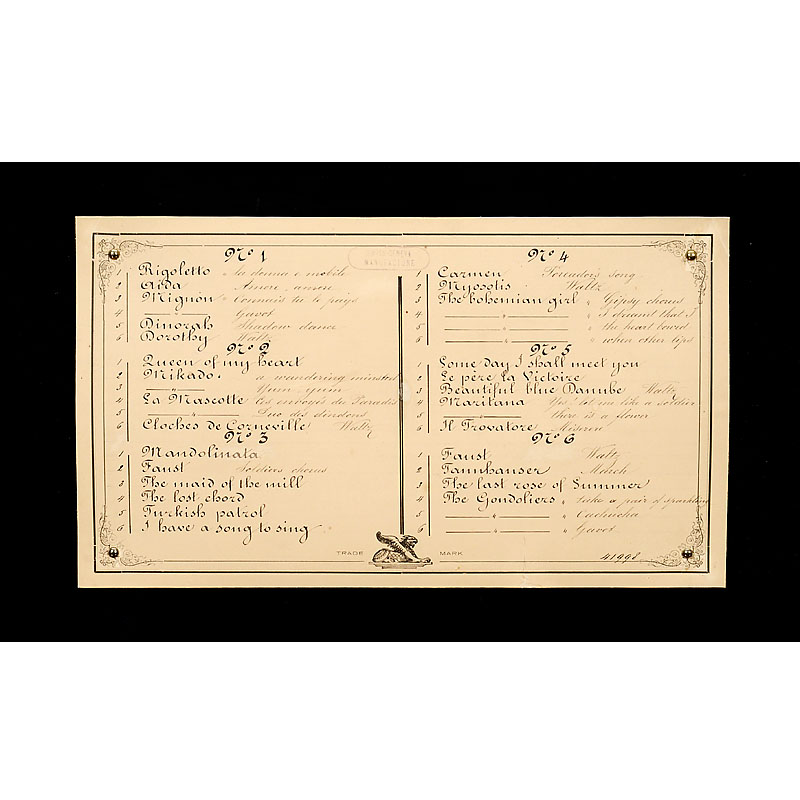 Nº 1
1 Rigoletto La donna e mobile
2 Aida Amore, amore
3 Mignon " Connais tu le pays
4 " Gavot
5 Dinorah Shadow dance
6 Dorothy Waltz
Nº 2
1 Queen of my heart
2 Mikado. a wandering minstrel
3 "
4 La Mascotte Les envoyés du Paradis
5 " Duo des dindons
6 Cloches de Corneville Waltz
Nº 3
1 Mandolinata
2 Faust Soldiers chorus
3 The maid of the mill
4 The lost chord
5 Turkish patrol
6 I have a song to sing
Nº 4
1 Carmen Toreador's song
2 Myosotis Waltz
3 The bohemian girl " Gipsy chorus
4 " " I dreamt that I
5 " " the heart bowed
6 " " when other lips
Nº 5
1 Some day I shall meet you
2 Le père la Victoire
3 Beautiful blue Danube Waltz
4 Maritana Yes! let me like a soldier
5 " there is a flower
6 Il Trovatore Miserere
Nº 6
1 Faust Waltz
2 Tannhauser March
3 The last rose of Summer
4 The Gondoliers " Take a pair of sparkling
5 " " Cachucha
6 " " Gavot
TRADE MARK
41998